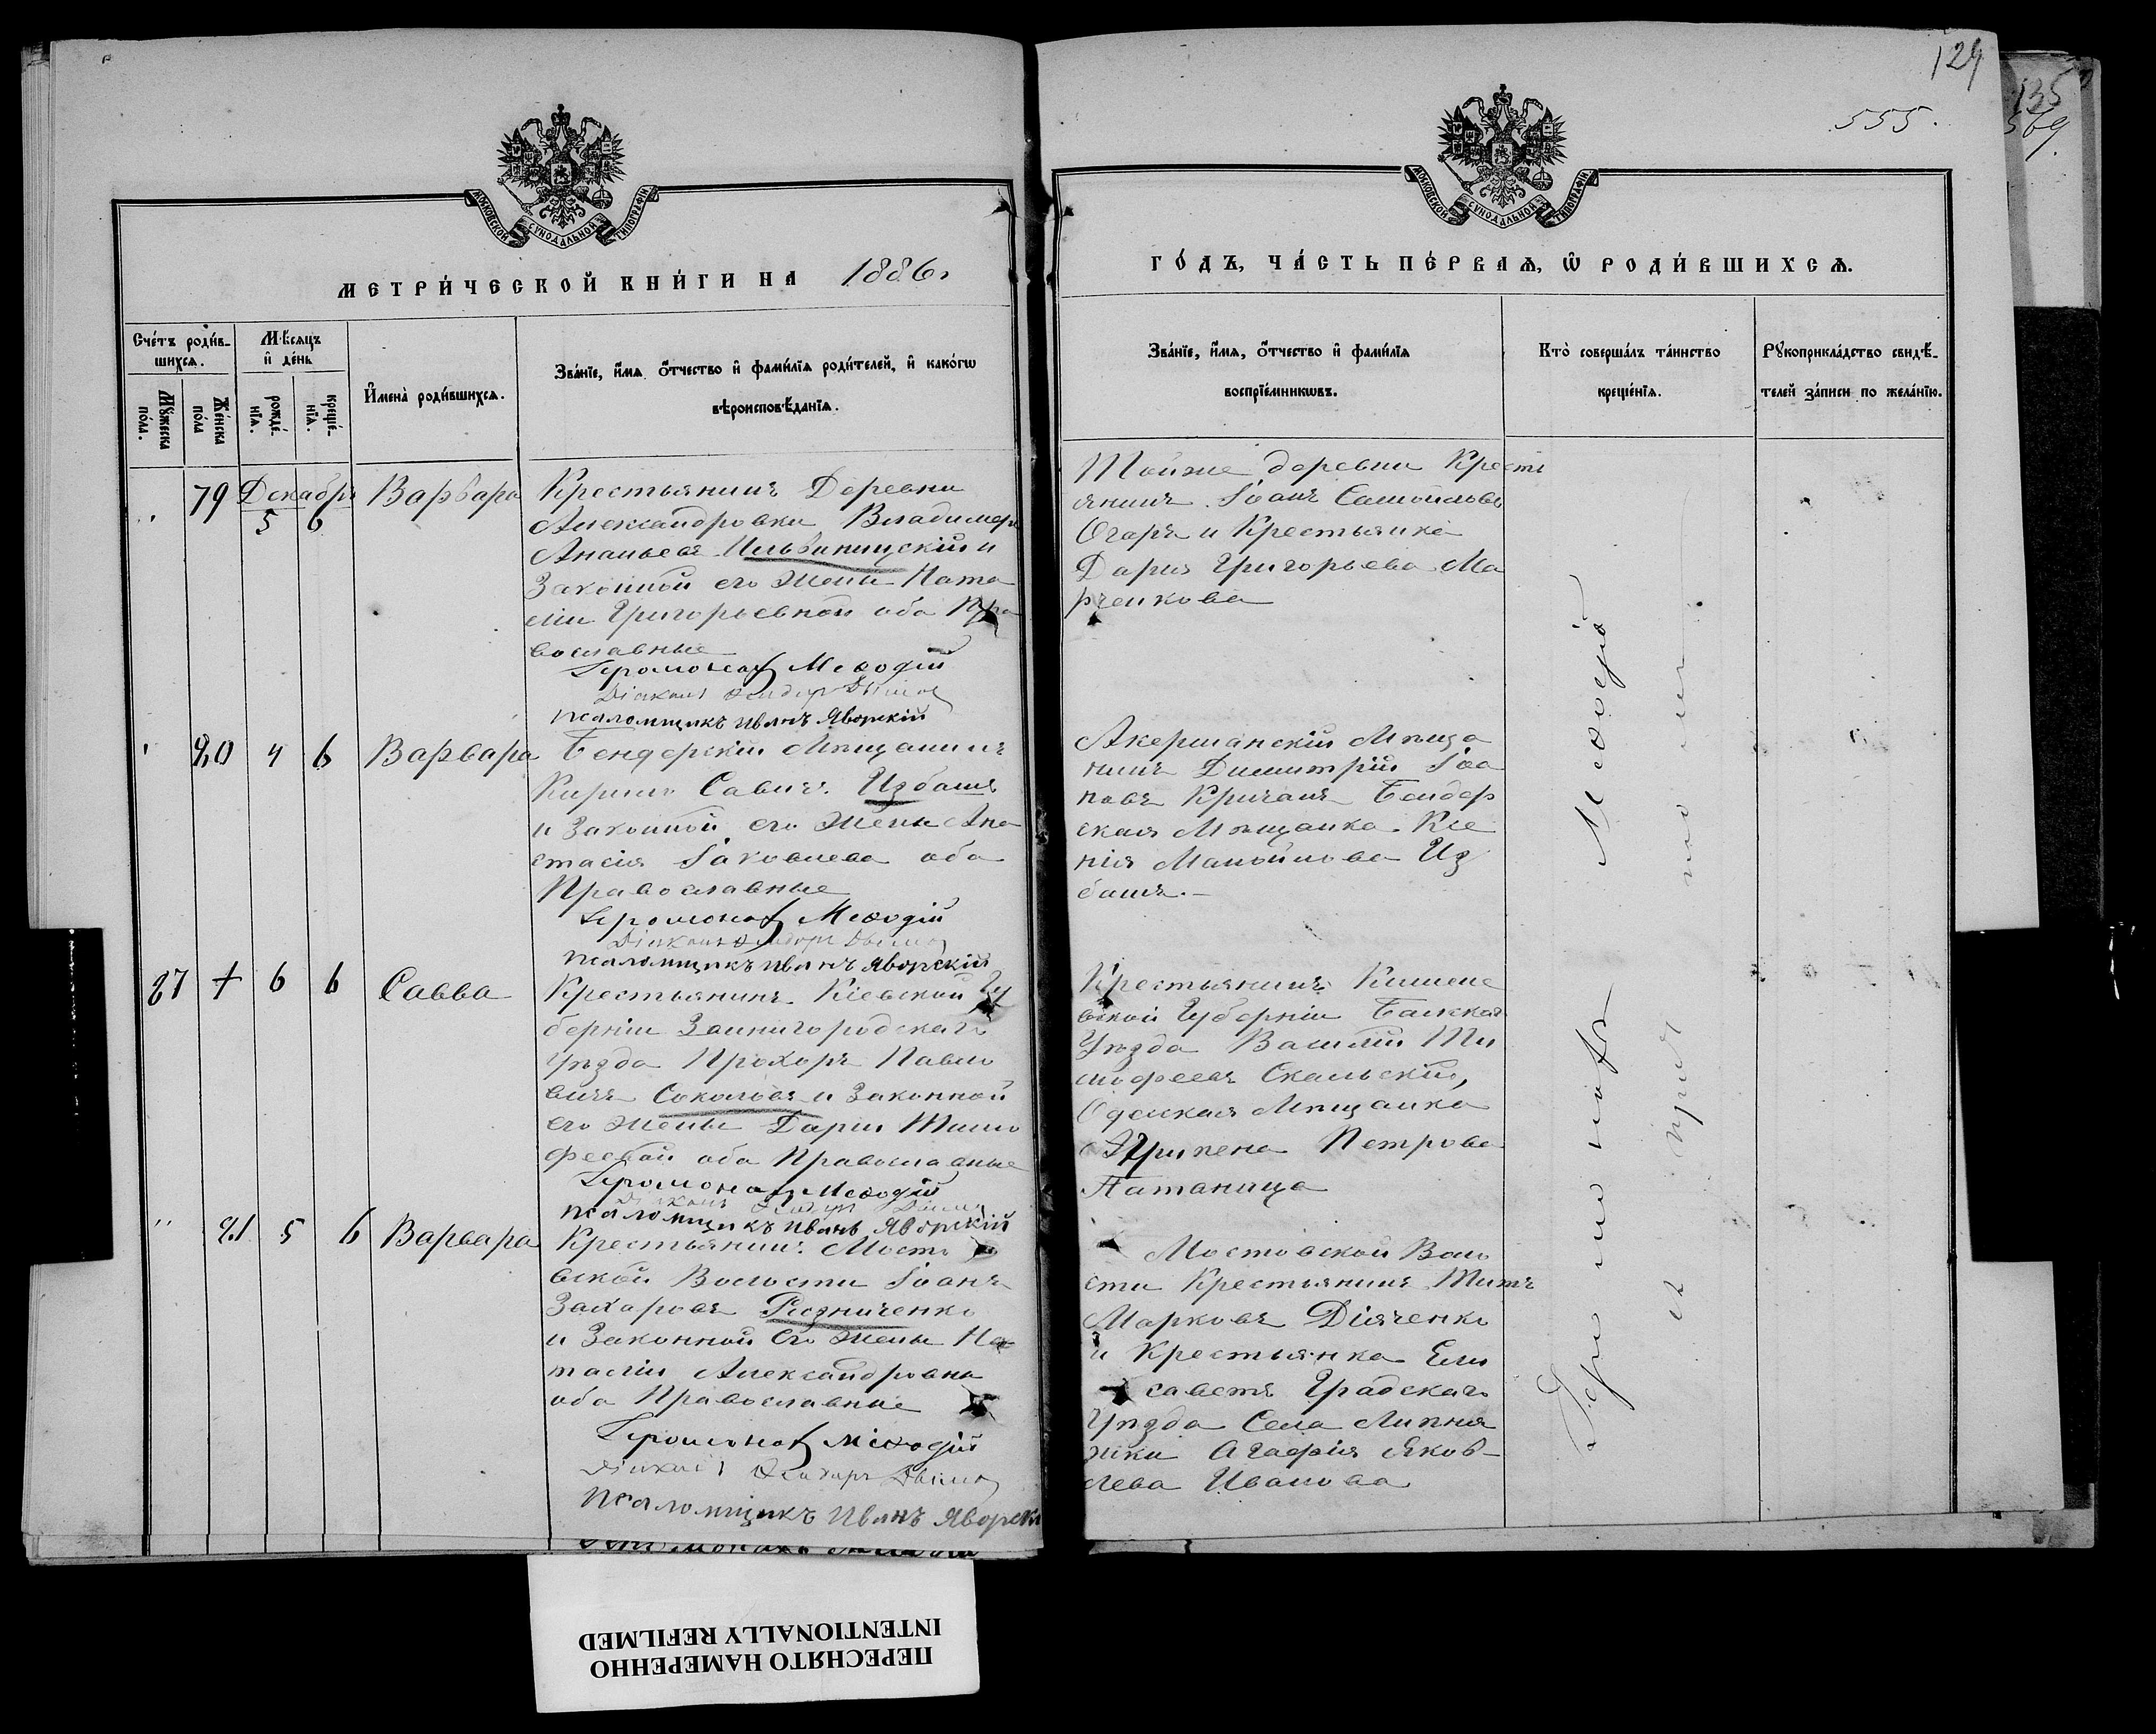 129
555.
135
569.
МОСКОВСКОЙ СѴНОДАЛЬНОЙ ТИПОГРАФІИ
МОСКОВСКОЙ СѴНОДАЛЬНОЙ ТИПОГРАФІИ
МЕТРИ́ЧЕСКОЙ КНИ́ГИ НА 1886.
ГО́ДЪ, ЧА́СТЬ ПЕ́РВАѦ, Ѡ РОДИ́ВШИХСѦ.
Сче́тъ роди́в-
шихсѧ.
Мꙋ́жеска по́ла.
Же́нска по́ла
Мѣ́сѧцъ
и҆ де́нь
рожде́-
нїѧ.
креще́-
нїѧ.
И҆мена̀ роди́вшихсѧ.
Зва́нїе, и҆́мѧ ѻ҆́тчество и҆ фами́лїѧ роди́телей, и҆ како́гѡ
вѣроисповѣ́данїѧ.
Зва́нїе, и҆́мѧ, ѻ҆́тчество и҆ фами́лїѧ
воспрїе́мникѡвъ.
Кто̀ соверша́лъ та́инство
креще́нїѧ.
Рꙋкоприкла́дство свидѣ́-
телей за́писи по жела́нїю.
79 Декабря Варвара
5 6
Крестьянинъ Деревни
Александровки Владимеръ
Ананьевъ
Законной его жены Ната
ліи Григорьевной оба Пра
вославные
Іеромонах Меѳодій
Діаконъ
псаломщикъ Иванъ Яворскій
Тойже деревни Кресть
янинъ Іоанъ Самойловъ
Огаръ и Крестьянка
Дарія Григорьева Ма
рченкова
80 4 6 Варвара
Бендерскій Мѣщанинъ
Кирилъ Савичъ Избашъ
и Законной его Жены Ана
стасія Іаковлева оба
Православные
Іеромонах Меѳодій
Діаконъ
псаломщикъ Иванъ Яворскій
Акерманскій Мѣща
нинъ Димитрій Іоа
новъ Кричанъ Бендер
ская Мѣщанка Ксе
нія Манойлова Из
башъ.
87 + 6 6 Савва
Крестьянинъ Кіевской Гу
берніи Звенигородскаго
Уѣзда Прохоръ Павло
вичъ Соколовъ и Законной
его жены Даріи Тимо
феевой оба Православные
Іеромонах Меѳодій
Діаконъ
псаломщикъ Иванъ Яворскій
Крестьянинъ Кишене
вской Губерніи Бѣлскаго
Уѣзда Василій Ти
мофеевъ Скальскій,
Одеская Мѣщанка
Агрипена Петрова
Патаница
" 81 5 6 Варвара
Крестьянинъ Мосто
вской Волости Іоанъ
Захаровъ Резниченко
и Законной Его жены На
таліи Александровна
оба Православные
Іеромонах Меѳодій
Діаконъ
псаломщикъ Иванъ Яворскій
Мостовской Воло
сти Крестьянинъ Титъ
Марковъ Діяченко
и Крестьянка Ели
саветъ Градскаго
Уѣзда Села Липня
жки Агафія Яков-
лева Иванова
Іеромонах Меѳодій
ПЕРЕСНЯТО НАМЕРЕННО
INTENTIONALLY REFILMED